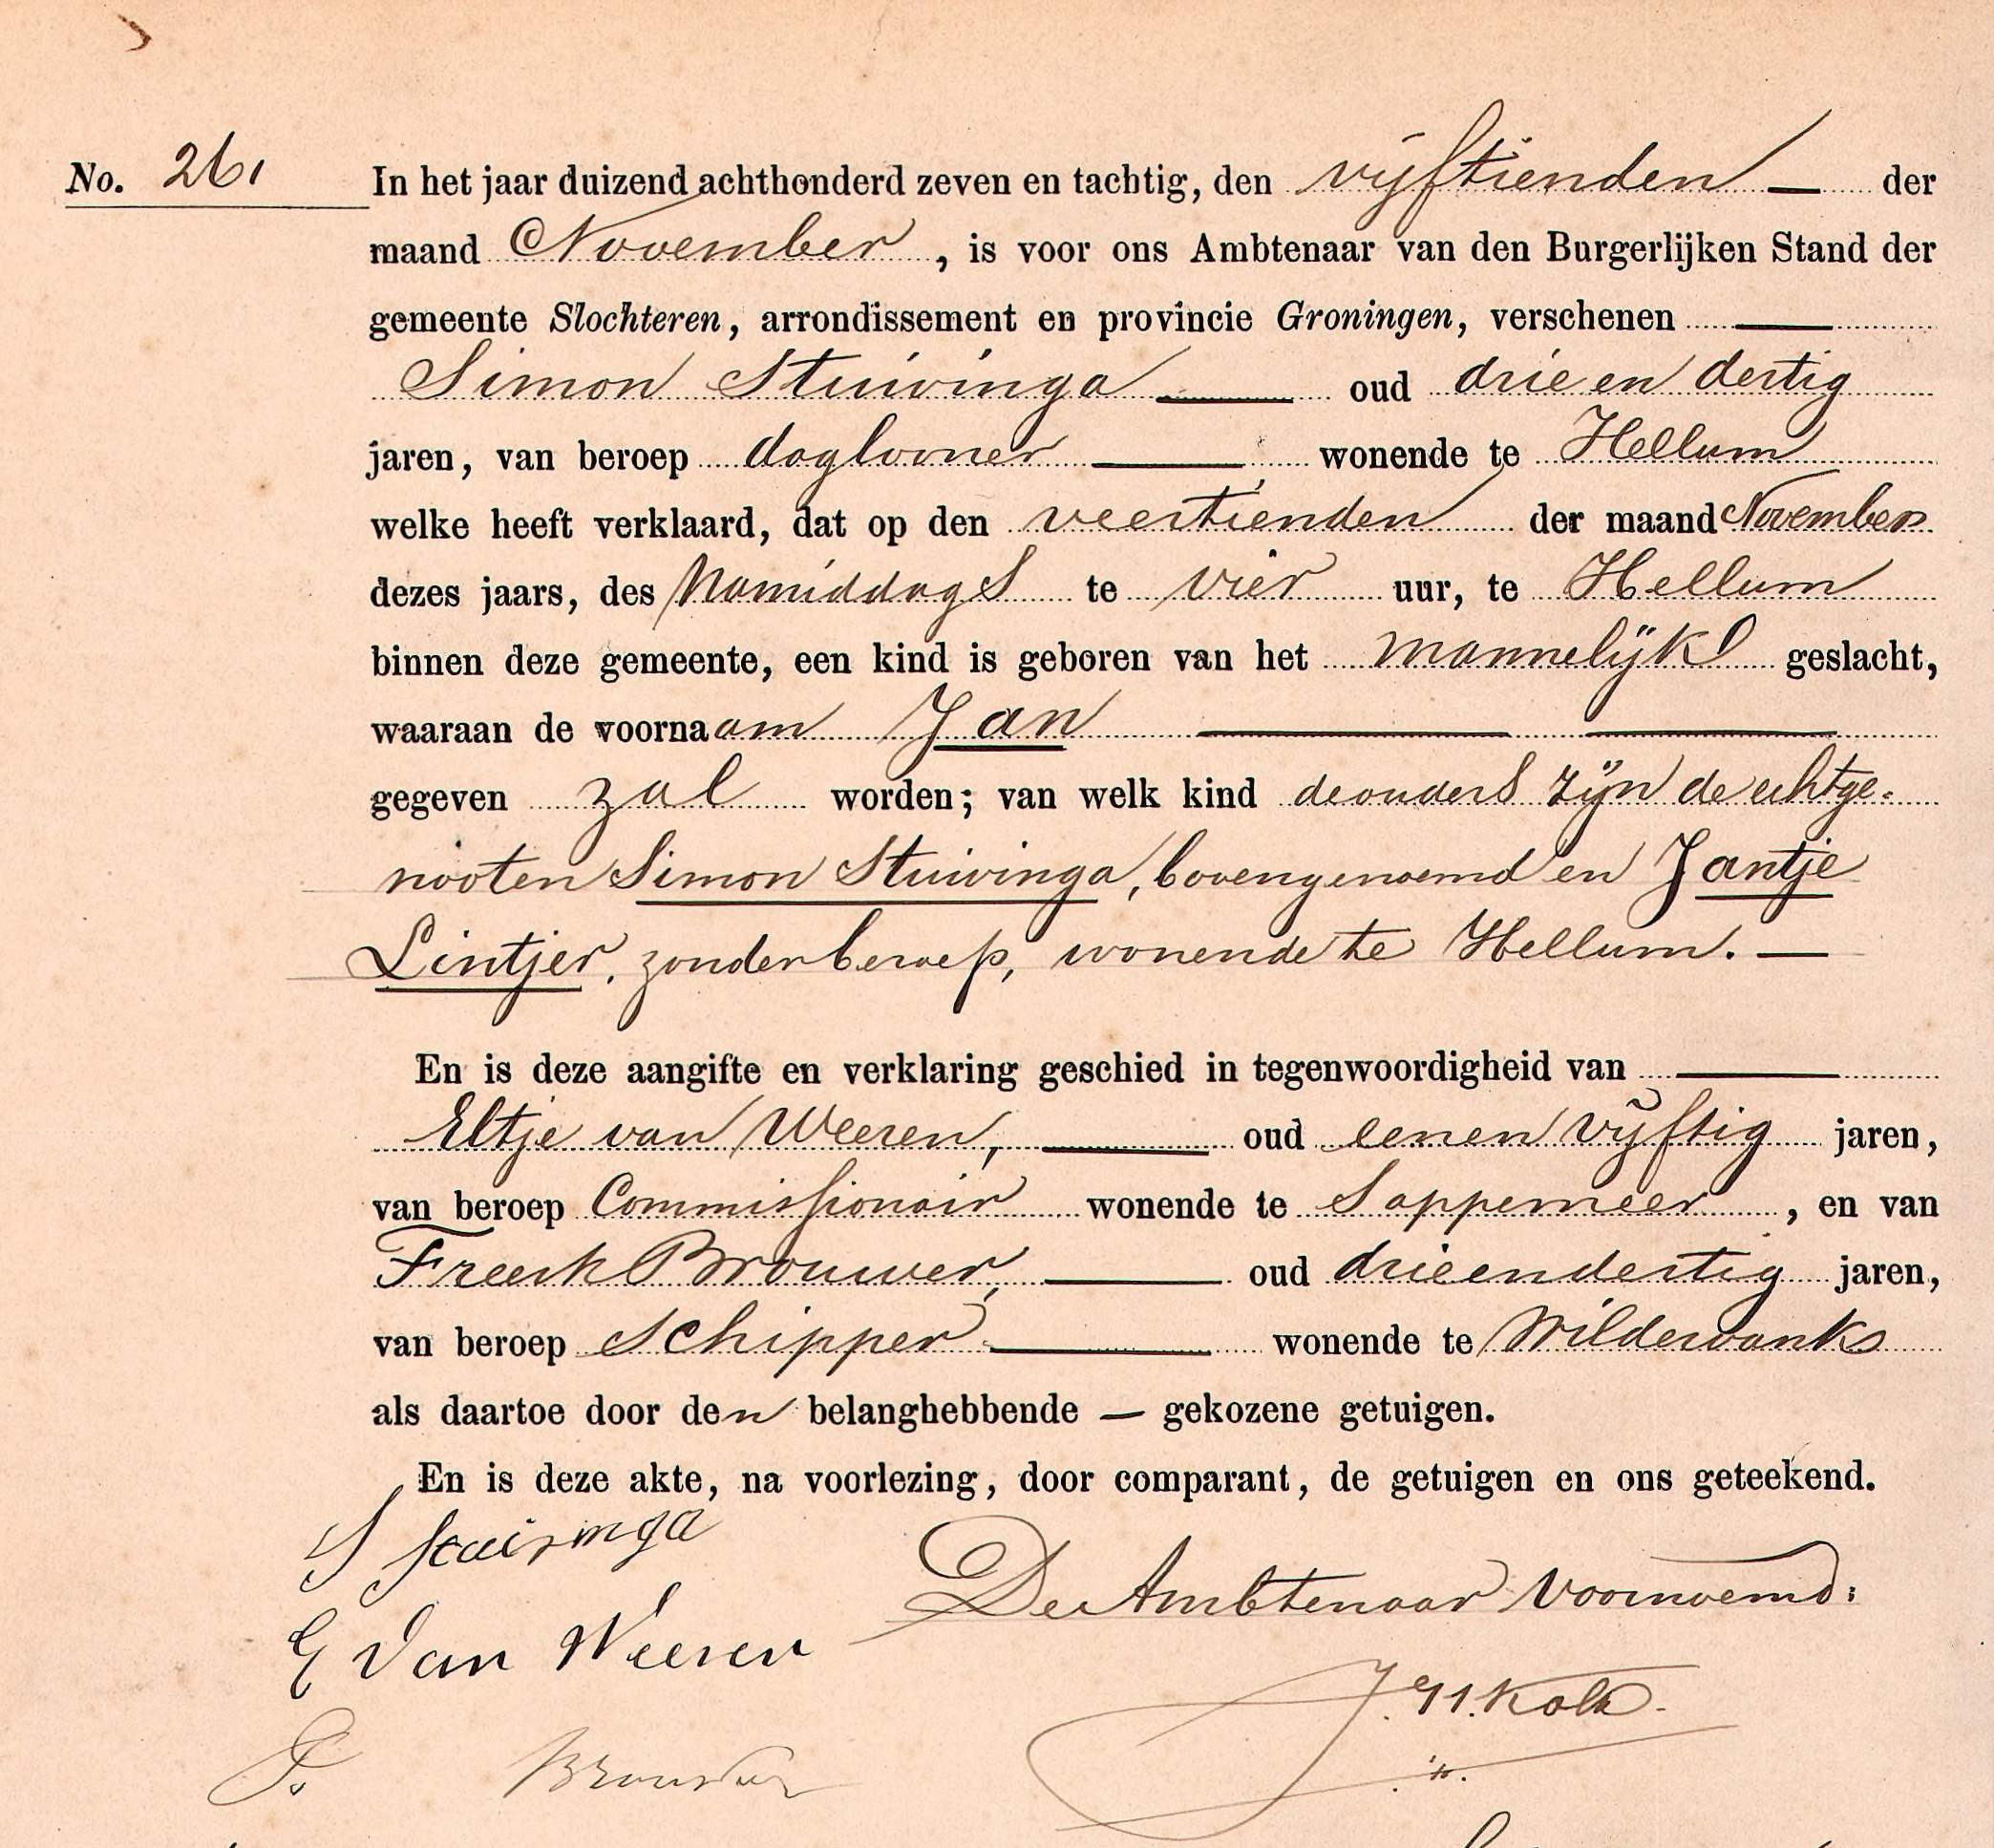 No. 261
In het jaar duizend achthonderd zeven en tachtig, den vijftienden — der
maand November, is voor ons Ambtenaar van den Burgerlijken Stand der
gemeente Slochteren, arrondissement en provincie Groningen, verschenen —
Simon Stuivinga — oud drie en dertig
jaren, van beroep daglooner — wonende te Hellum
welke heeft verklaard, dat op den veertienden der maand November
dezes jaars, des Namiddags te vier uur, te Hellum
binnen deze gemeente, een kind is geboren van het mannelijke geslacht,
waaraan de voornaam Jan — —
gegeven zal worden; van welk kind de ouders zijn de echtge-
nooten Simon Stuivinga, bovengenoemd en Jantje
Lintjer, zonder beroep, wonende te Hellum. —
En is deze aangifte en verklaring geschied in tegenwoordigheid van —
Eltje van Weeren, — oud eenen vijftig jaren,
van beroep Commissionair wonende te Sappemeer, en van
Freerk Brouwer, — oud drieendertig jaren,
van beroep Schipper — wonende te Wildervanks
als daartoe door den belanghebbende — gekozene getuigen.
En is deze akte, na voorlezing, door comparant, de getuigen en ons geteekend.
S Stuivinga
De Ambtenaar voornoemd:
E van Weeren
J. H. Kolk.
F. Brouwer